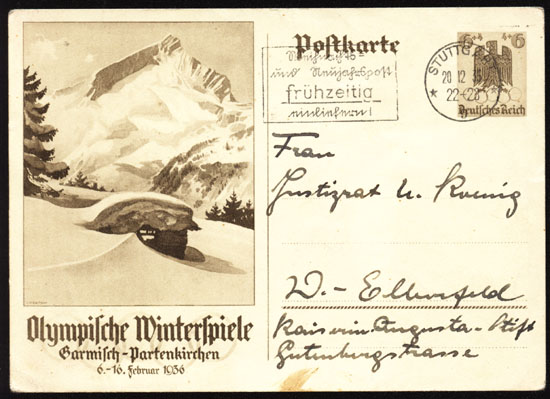 Postkarte
6+4 6
Weihnachts-
und Neujahrspost
frühzeitig
einliefern!
STUTTGART
20.12.35
22-23
Deutsches Reich
Frau
Justizrat u. Koenig
W.- Elberfeld
Kaiserin Augusta-Stift
Gutenbergstrasse
Olympische Winterspiele
Garmisch-Partenkirchen
6.-16. Februar 1936